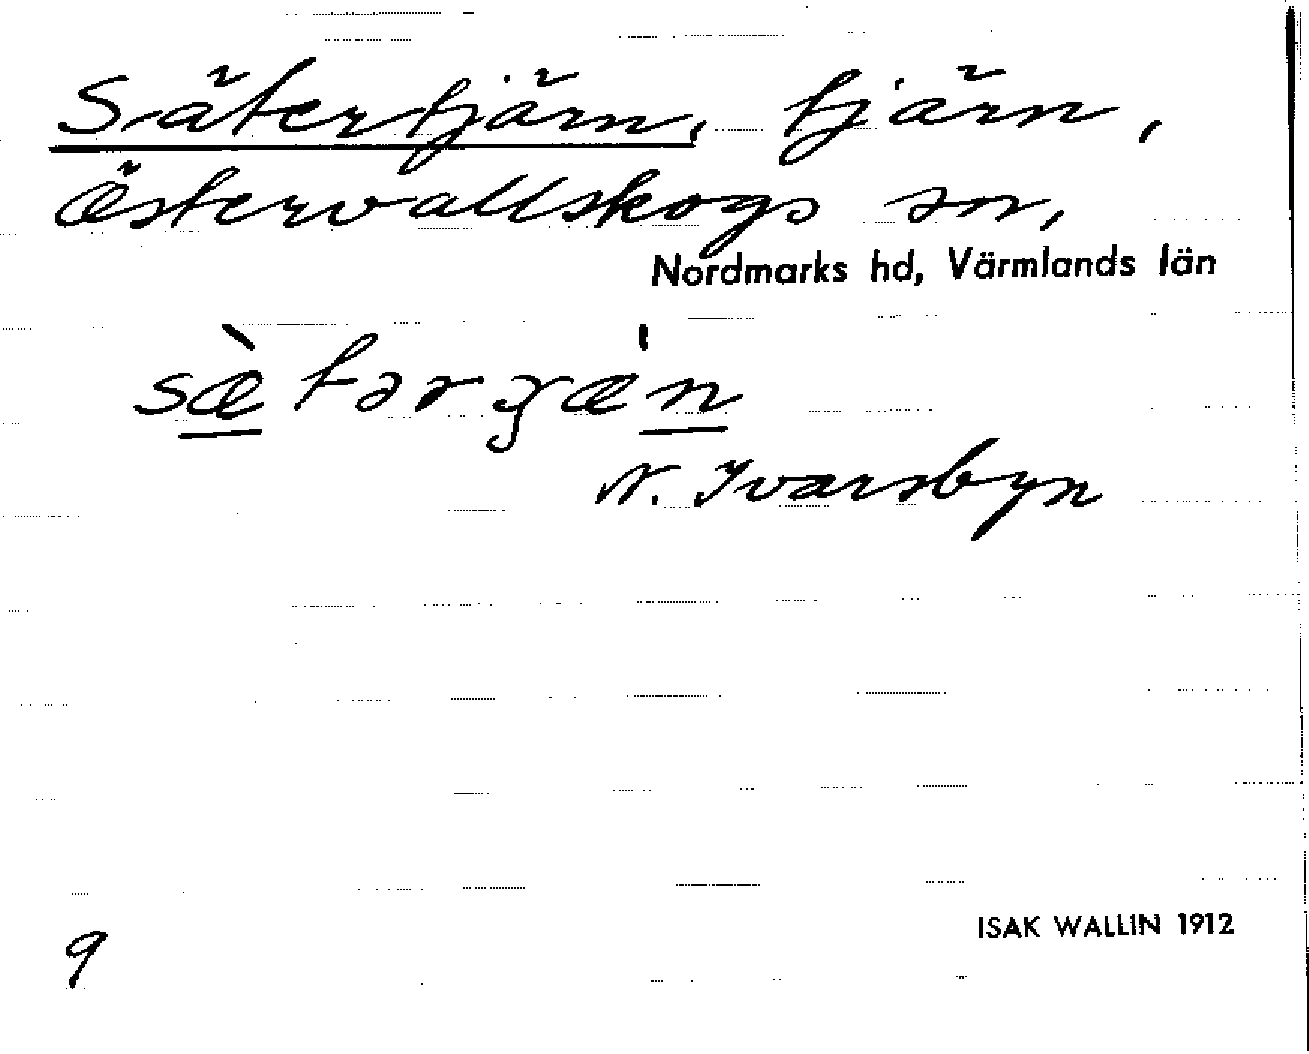 Sätertjärn, tjärn,
Östervallskogs sn,
Nordmarks hd, Värmlands län
N. Ivarsbyn
ISAK WALLIN 1912
9